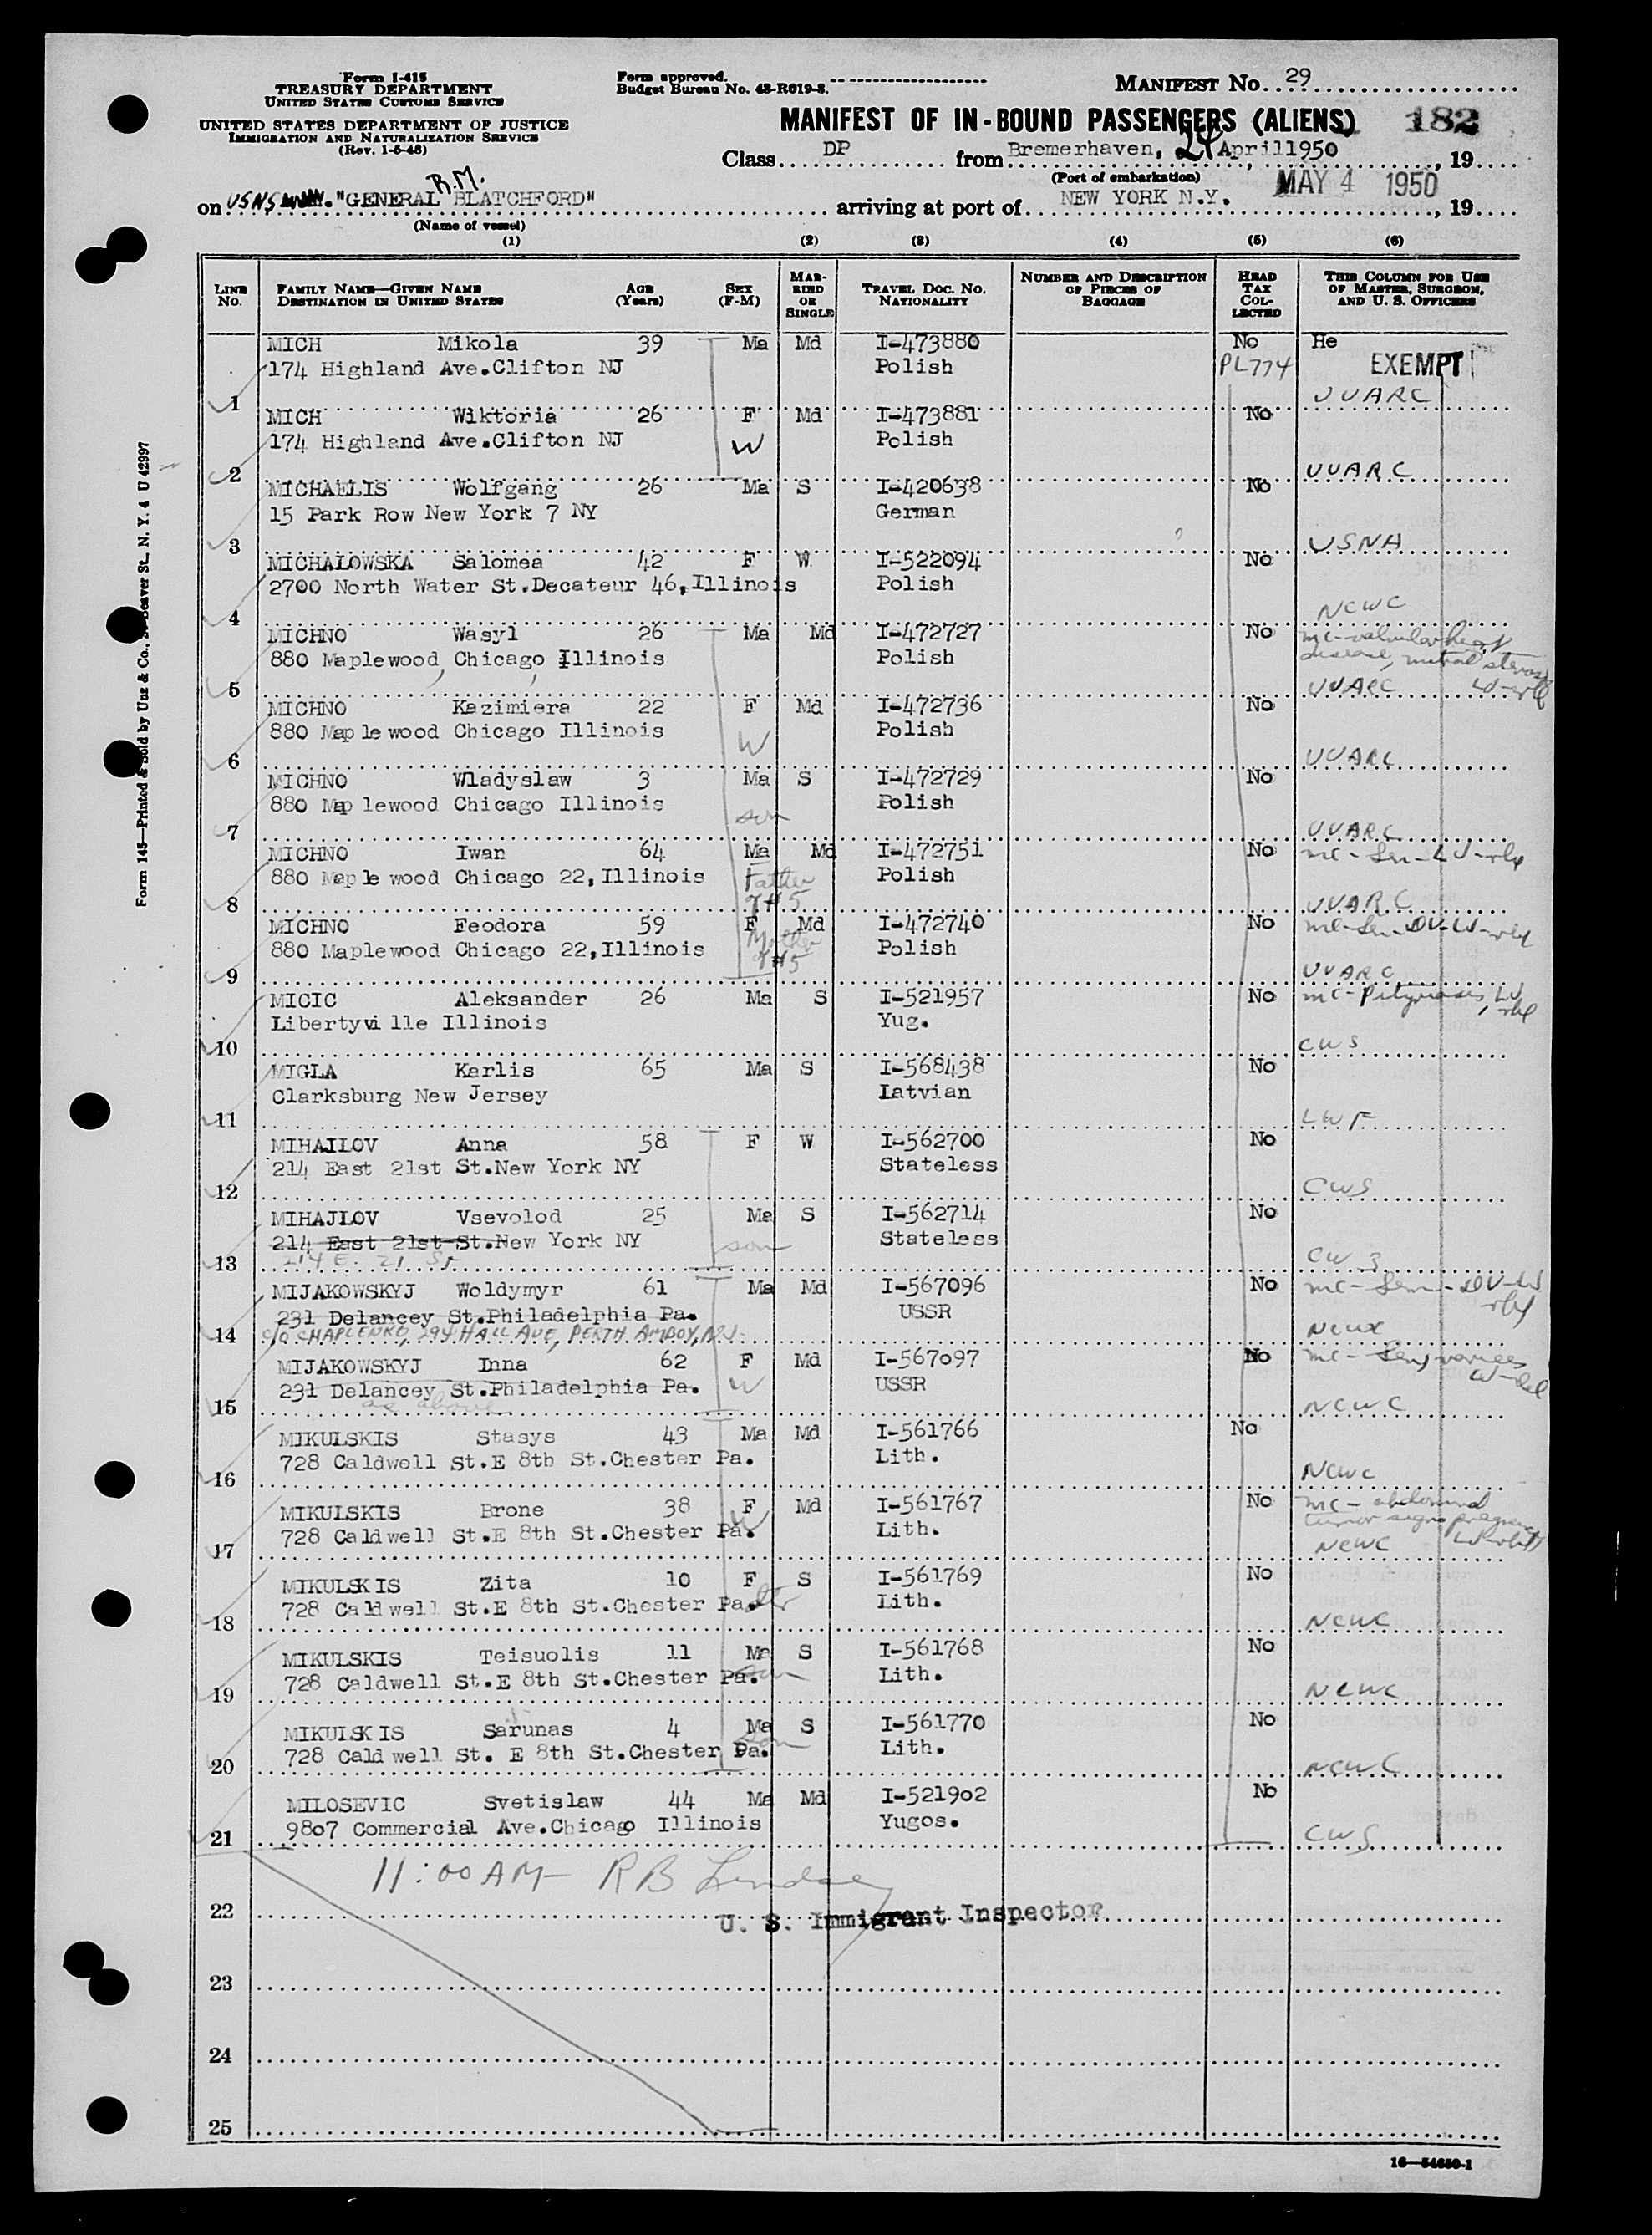 Form I-415
TREASURY DEPARTMENT
UNITED STATES CUSTOMS SERVICE
UNITED STATES DEPARTMENT OF JUSTICE
IMMIGRATION AND NATURALIZATION SERVICE
(Rev. 1-5-48)
Form approved.
Budget Bureau No. 43-R019-8.
MANIFEST No. 29
MANIFEST OF IN-BOUND PASSENGERS (ALIENS) 182
Class DP from Bremerhaven, 24 April1950, 19
(Port of embarkation)
on USNS "GENERAL R.M. BLATCHFORD" arriving at port of NEW YORK N.Y. MAY 4 1950, 19
(Name of vessel)
(1) (2) (3) (4) (5) (6)
LINE No. FAMILY NAME—GIVEN NAME DESTINATION IN UNITED STATES AGE (Years) SEX (F-M) MARRIED OR SINGLE TRAVEL DOC. NO. NATIONALITY NUMBER AND DESCRIPTION OF PIECES OF BAGGAGE HEAD TAX COLLECTED THIS COLUMN FOR USE OF MASTER, SURGEON, AND U. S. OFFICERS
MICH Mikola 39 Ma Md I-473880 No He
174 Highland Ave.Clifton NJ Polish PL774 EXEMPT
1 UUARC
MICH Wiktoria 26 F Md I-473881 No
174 Highland Ave.Clifton NJ W Polish
2 UUARC
MICHAELIS Wolfgang 26 Ma S I-420638 No
15 Park Row New York 7 NY German
3 USNA
MICHALOWSKA Salomea 42 F W I-522094 No
2700 North Water St.Decateur 46,Illinois Polish
4 NCWC
MICHNO Wasyl 26 Ma Md I-472727 No mc-valvular heart
880 Maplewood, Chicago, Illinois Polish disease, mitral stenosis
5 UUARC
MICHNO Kazimiera 22 F Md I-472736 No
880 Maplewood Chicago Illinois W Polish
6 UUARC
MICHNO Wladyslaw 3 Ma S I-472729 No
880 Maplewood Chicago Illinois son Polish
7 UUARC
MICHNO Iwan 64 Ma Md I-472751 No mc-Sen-
880 Maplewood Chicago 22,Illinois Father of #5 Polish
8 UUARC
MICHNO Feodora 59 F Md I-472740 No mc-Sen-DV-
880 Maplewood Chicago 22,Illinois Mother of #5 Polish
9 UUARC
MICIC Aleksander 26 Ma S I-521957 No mc-Pityriasis,
Libertyville Illinois Yug.
10 CWS
MIGLA Karlis 65 Ma S I-568438 No
Clarksburg New Jersey Latvian
11 LWF
MIHAILOV Anna 58 F W I-562700 No
214 East 21st St.New York NY Stateless
12 CWS
MIHAJLOV Vsevolod 25 Ma S I-562714 No
214 East 21st St.New York NY son Stateless
13 214 E. 21 St CWS
MIJAKOWSKYJ Woldymyr 61 Ma Md I-567096 No mc-Sen-DV-
231 Delancey St.Philadelphia Pa. USSR
14 c/o CHAPLENKO, 294 HALL AVE, PERTH AMBOY, N.J. NCWC
MIJAKOWSKYJ Inna 62 F Md I-567097 No mc-Sen, varices
231 Delancey St.Philadelphia Pa. W USSR
15 as above NCWC
MIKULSKIS Stasys 43 Ma Md I-561766 No
728 Caldwell St.E 8th St.Chester Pa. Lith.
16 NCWC
MIKULSKIS Brone 38 F Md I-561767 No mc-abdominal
728 Caldwell St.E 8th St.Chester Pa. W Lith. tumor signs pregnancy
17 NCWC
MIKULSKIS Zita 10 F S I-561769 No
728 Caldwell St.E 8th St.Chester Pa. dtr Lith.
18 NCWC
MIKULSKIS Teisuolis 11 Ma S I-561768 No
728 Caldwell St.E 8th St.Chester Pa. son Lith.
19 NCWC
MIKULSKIS Sarunas 4 Ma S I-561770 No
728 Caldwell St. E 8th St.Chester Pa. son Lith.
20 NCWC
MILOSEVIC Svetislaw 44 Ma Md I-521902 No
9807 Commercial Ave.Chicago Illinois Yugos.
21 CWS
11:00 AM- R B Lindsey
22 U. S. Immigrant Inspector
23
24
25
16—54650-1
Form 145—Printed & Sold by Unz & Co., Beaver St., N. Y. 4 U 42997